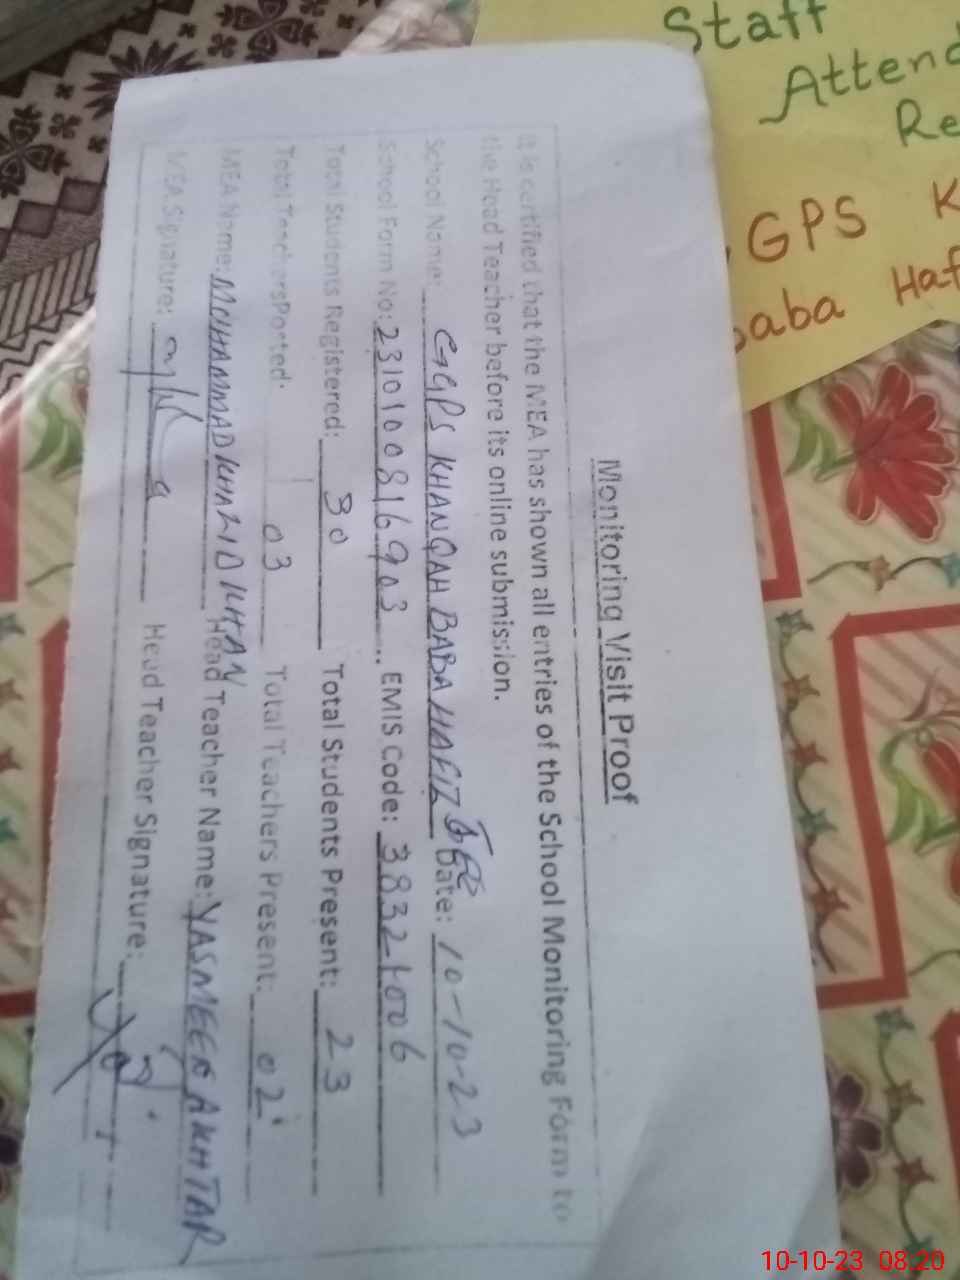 Monitoring Visit Proof
It is certified that the MEA has shown all entries of the School Monitoring Form to
the Head Teacher before its online submission.
School Name: GGPS KHANQAH BABA HAFIZ Date: 10-10-23
School Form No: 2310100816903 EMIS Code: 38321006
Total Students Registered: 30 Total Students Present: 23
Total Teachers Posted: 03 Total Teachers Present: 02
MEA Name: MOHAMMAD KHALID KHAN Head Teacher Name: YASMEEN AKHTAR
MEA Signature: Head Teacher Signature:
Staff
Attend
Re
GPS K
baba Haf
10-10-23 08:20